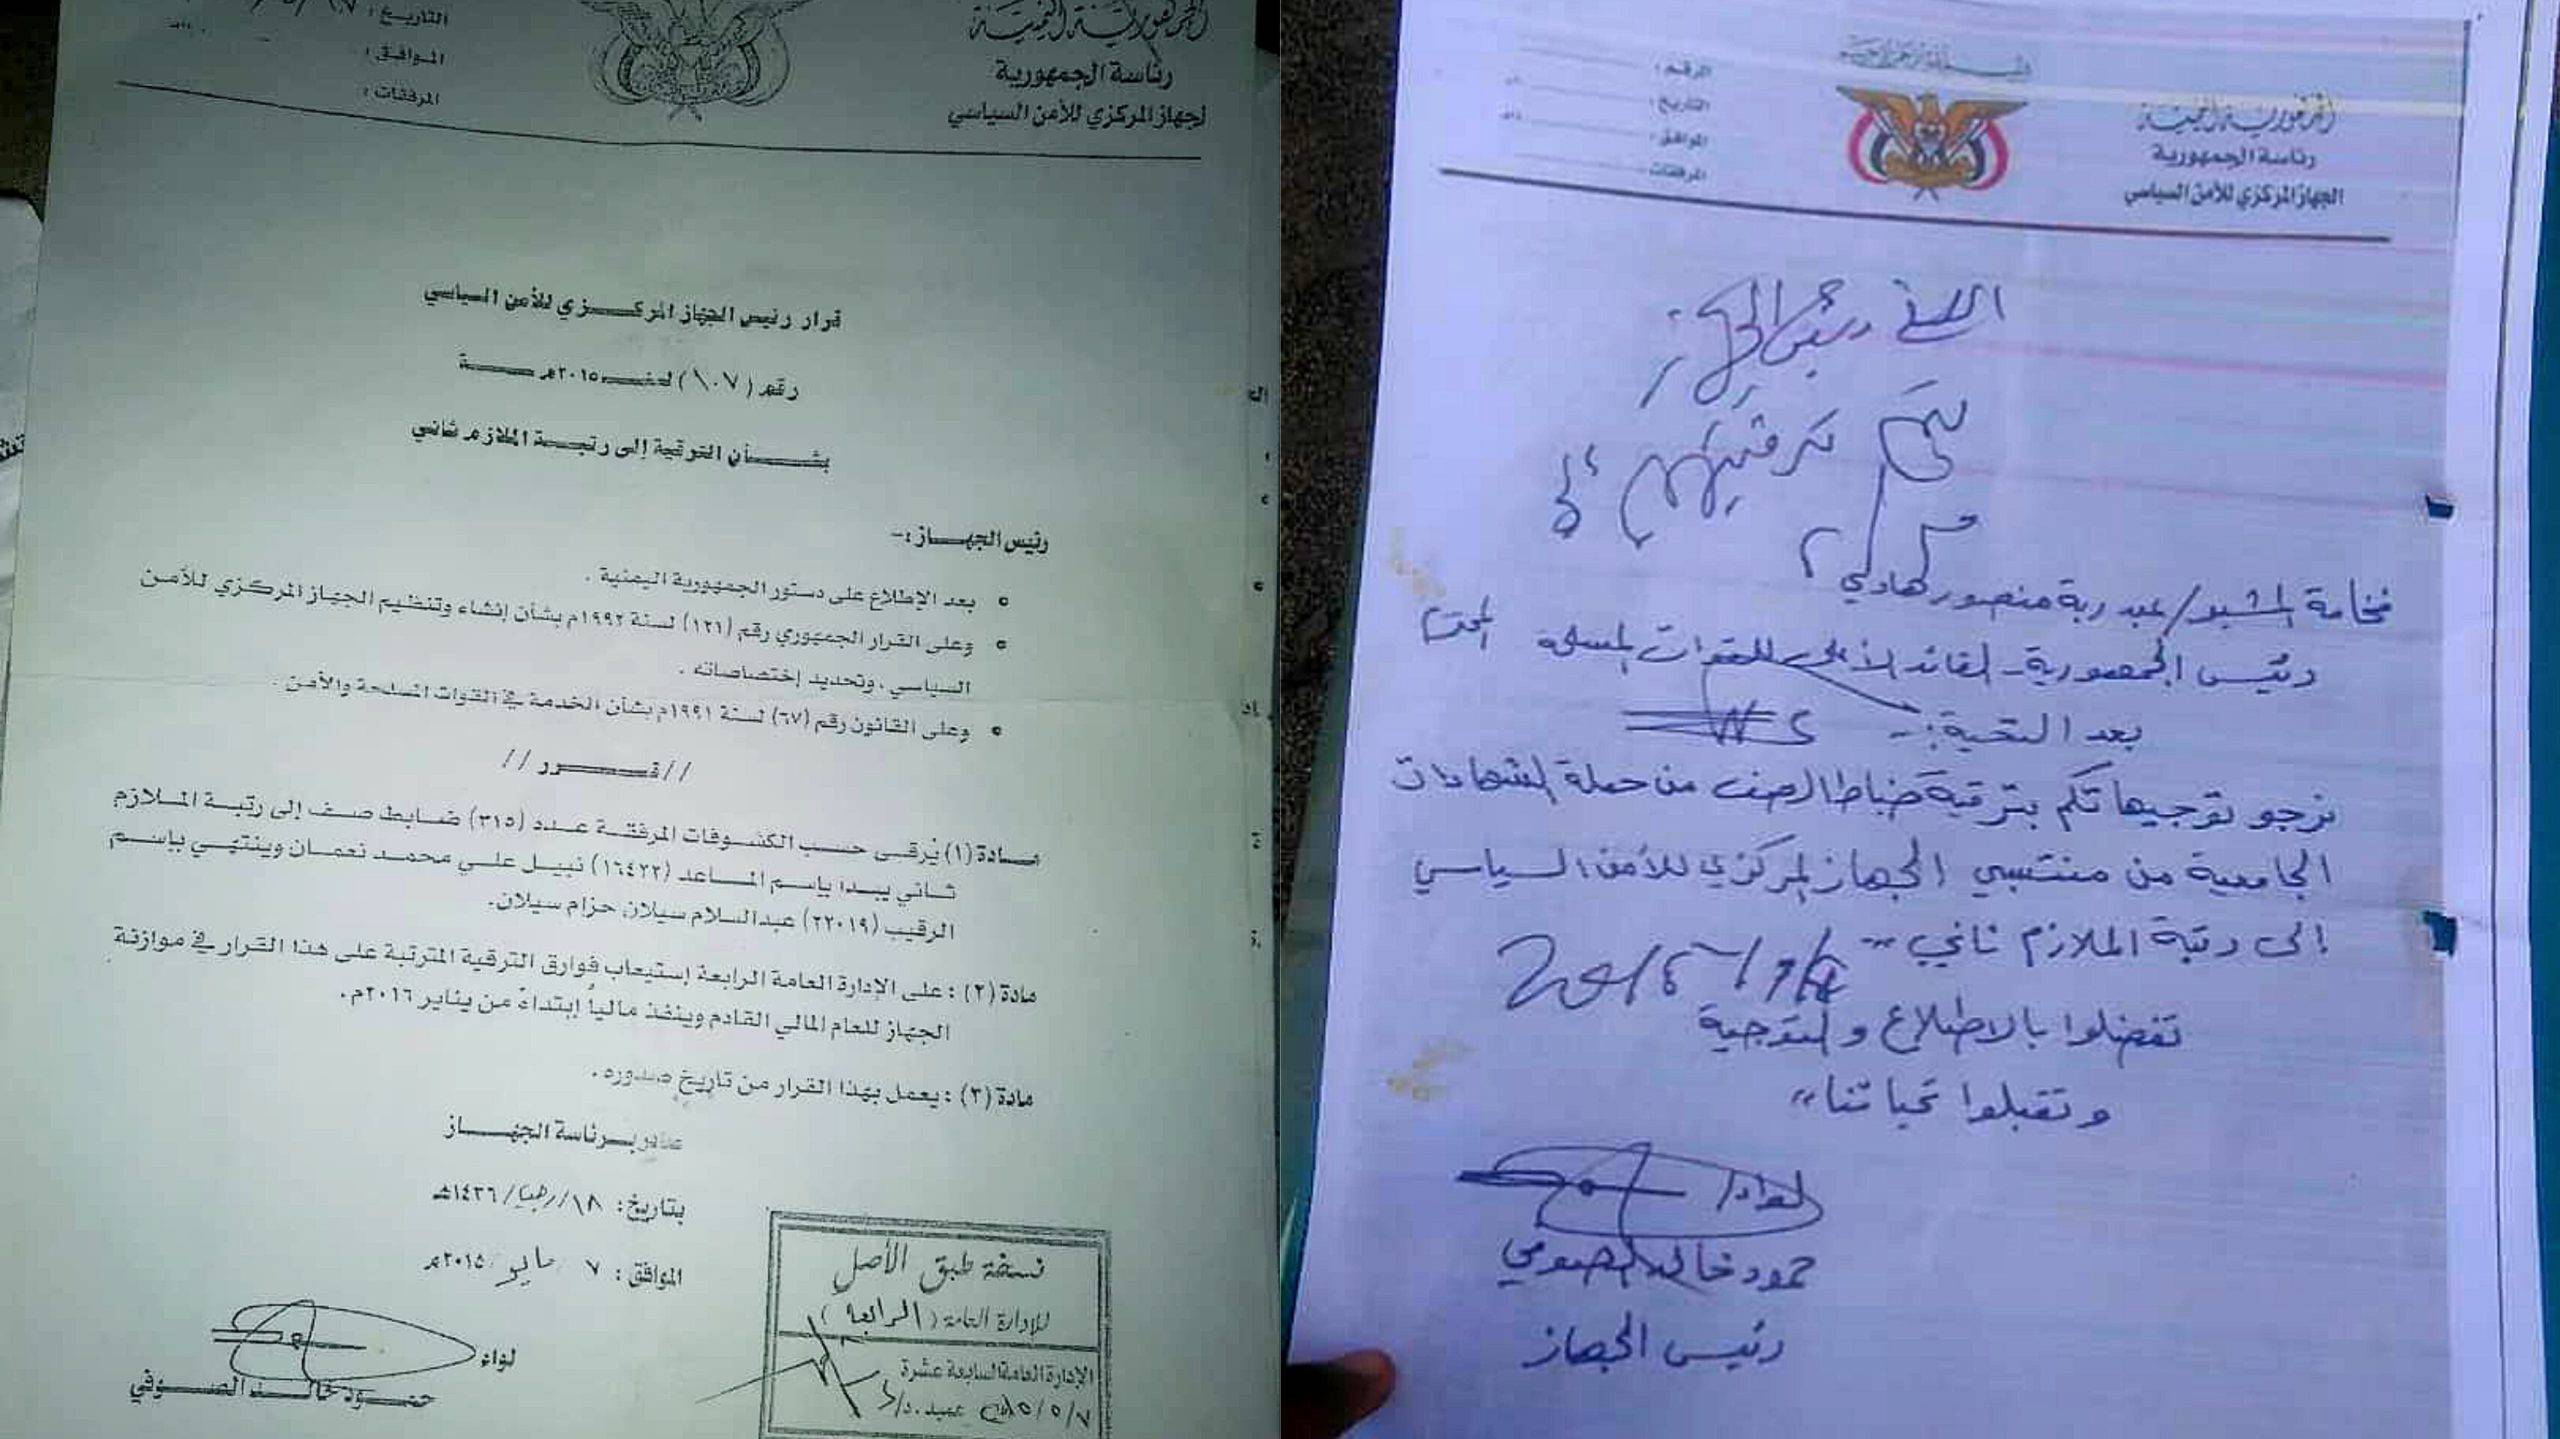 الجمهورية اليمنية
رئاسة الجمهورية
الجهاز المركزي للأمن السياسي
التاريخ :
الموافق :
المرفقات :
قرار رئيس الجهاز المركـــزي للأمن السياسي
رقم (١٠٧) لسنـــة ٢٠١٥م
بشـــأن الترقية إلى رتبـــة الملازم ثاني
رئيس الجهـــاز :-
بعد الإطلاع على دستور الجمهورية اليمنية .
وعلى القرار الجمهوري رقم (١٢١) لسنة ١٩٩٢م بشأن إنشاء وتنظيم الجهاز المركزي للأمن
السياسي ، وتحديد إختصاصاته .
وعلى القانون رقم (٦٧) لسنة ١٩٩١م بشأن الخدمة في القوات المسلحة والأمن .
// قـــرر //
مـــادة (١) يُرقـى حسب الكشوفات المرفقة عدد (٣١٥) ضابط صف إلى رتبة الملازم
ثاني يبدا باسم المساعد (١٦٤٢٢) نبيل علي محمد نعمان وينتهي بإسم
الرقيب (٢٢٠١٩) عبدالسلام سيلان حزام سيلان.
مادة (٢) : على الإدارة العامة الرابعة إستيعاب فوارق الترقية المترتبة على هذا القرار في موازنة
الجهاز للعام المالي القادم وينفذ مالياً إبتداءً من يناير ٢٠١٦م .
مادة (٣) : يعمل بهذا القرار من تاريخ صدوره .
صادر برئاسة الجهـــاز
بتاريخ : ١٨/رجب/١٤٣٦هـ
الموافق : ٧ / مايو / ٢٠١٥م
لواء
حمـود خالـد الصـوفي
نسخة طبق الأصل
للإدارة العامة (الرابعة)
الإدارة العامة السابعة عشرة
عميد . د/
الجمهورية اليمنية
رئاسة الجمهورية
الجهاز المركزي للأمن السياسي
بسم الله الرحمن الرحيم
الرقم :
التاريخ :
الموافق :
المرفقات :
الاخ رئيس الجهاز
يتم ترقيتهم الى
فخامة المشير/ عبدربة منصور هادي
رئيس الجمهورية - القائد الأعلى للقوات المسلحة المحترم
بعد التحية :-
نرجو توجيهاتكم بترقية ضباط الصف من حملة الشهادات
الجامعية من منتسبي الجهاز المركزي للأمن السياسي
إلى رتبة الملازم ثاني ..
تفضلوا بالاطلاع والتوجية
وتقبلوا تحياتنا ،،
لواء/
حمود خالد الصوفي
رئيس الجهاز